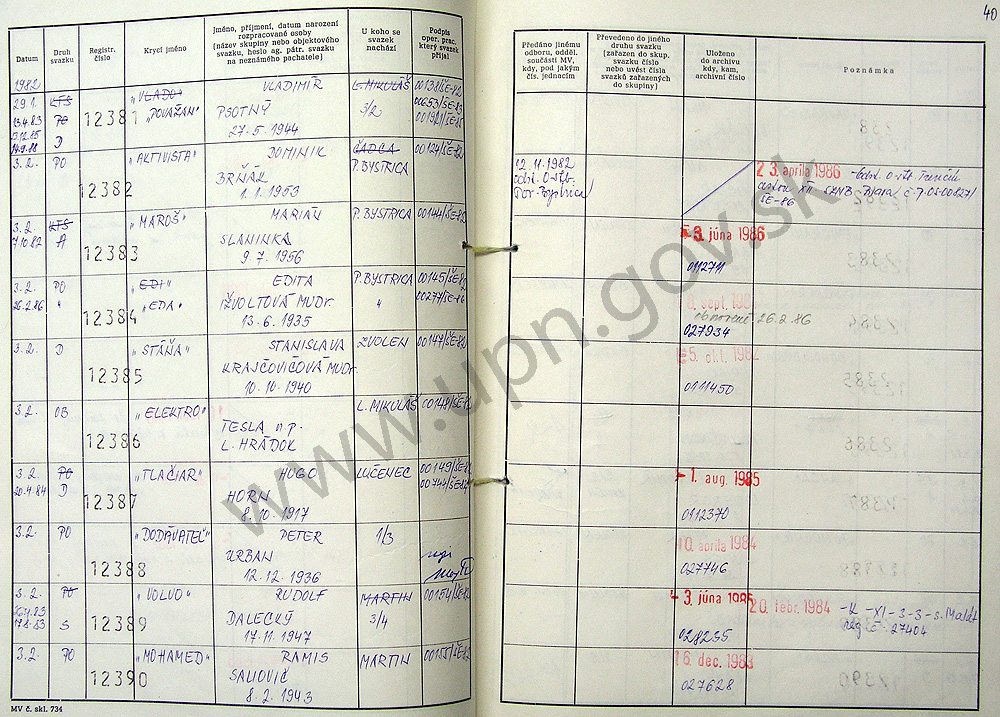 40
Datum
Druh svazku
Registr. číslo
Krycí jméno
Jméno, příjmení, datum narození rozpracované osoby (název skupiny nebo objektového svazku, heslo ag. pátr. svazku na neznámého pachatele)
U koho se svazek nachází
Podpis oper. prac. který svazek přijal
Předáno jinému odboru, odděl. součásti MV, kdy, pod jakým čís. jednacím
Převedeno do jiného druhu svazku (zařazen do skup. svazku číslo nebo uvést čísla svazků zařazených do skupiny)
Uloženo do archivu kdy, kam, archivní číslo
Poznámka
1982
29.1. KTS 12381 "VLADO" VLADIMÍR L. MIKULÁŠ 00138/ŠE-82
13.4.83 PO "POVAŽAN" PSOTNÝ 3/2
D 27.5.1944
3.2. PO 12382 "AKTIVISTA" DOMINIK ČADCA 00124/ŠE-82
BRŇÁK P. BYSTRICA
1.1.1953
12.11.1982
23. apríla 1986
ŠE-86
3.2. KTS 12383 "MAROŠ" MARIÁN P. BYSTRICA 00144/ŠE-82
7.10.82 A SLANINKA
9.7.1956
3. júna 1986
011271
3.2. PO 12384 "EDI" EDITA P. BYSTRICA 00145/ŠE-82
26.2.86 " "EDA" IŽVOLTOVÁ MUDr. " 00277/ŠE-86
13.6.1935
8. sept.
obnovené 26.2.86
027934
3.2. D 12385 "STÁŇA" STANISLAVA ZVOLEN 00147/ŠE-82
KRAJČOVIČOVÁ MUDr.
10.10.1940
5. okt. 1982
0111450
3.2. OB 12386 "ELEKTRO" L. MIKULÁŠ 00148/ŠE-82
TESLA n.p.
L. HRÁDOK
3.2. PO 12387 "TLAČIAR" HUGO LUČENEC 00149/ŠE-82
20.4.84 D HORN 00744/ŠE-84
8.10.1917
1. aug. 1985
0112370
3.2. PO 12388 "DODÁVATEĽ" PETER 1/3
URBAN
12.12.1936
10. apríla 1984
027746
3.2. PO 12389 "VOLVO" RUDOLF MARTIN 00154/ŠE-82
DALECKÝ 3/4
17.8.83 S 17.11.1947
3. júna 1985
20. febr. 1984
028235
27404
3.2. PO 12390 "MOHAMED" RAMIS MARTIN 00155/ŠE-82
SALIOVIČ
8.2.1943
16. dec. 1983
027628
MV č. skl. 734
www.upn.gov.sk